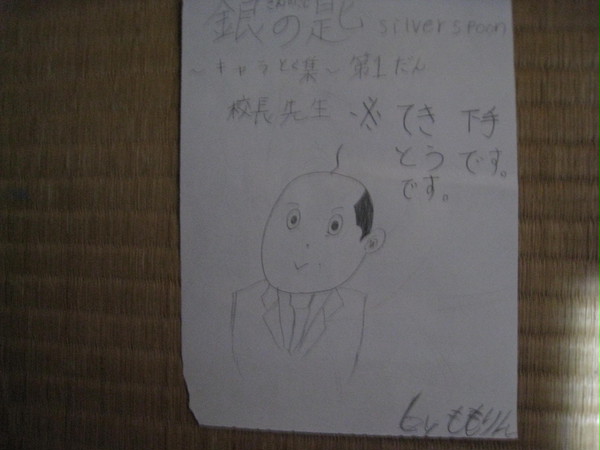 銀の匙 silver spoon
～キャラとく集～ 第1だん
校長先生 ※てきとうです。
下手です。
by ももりん